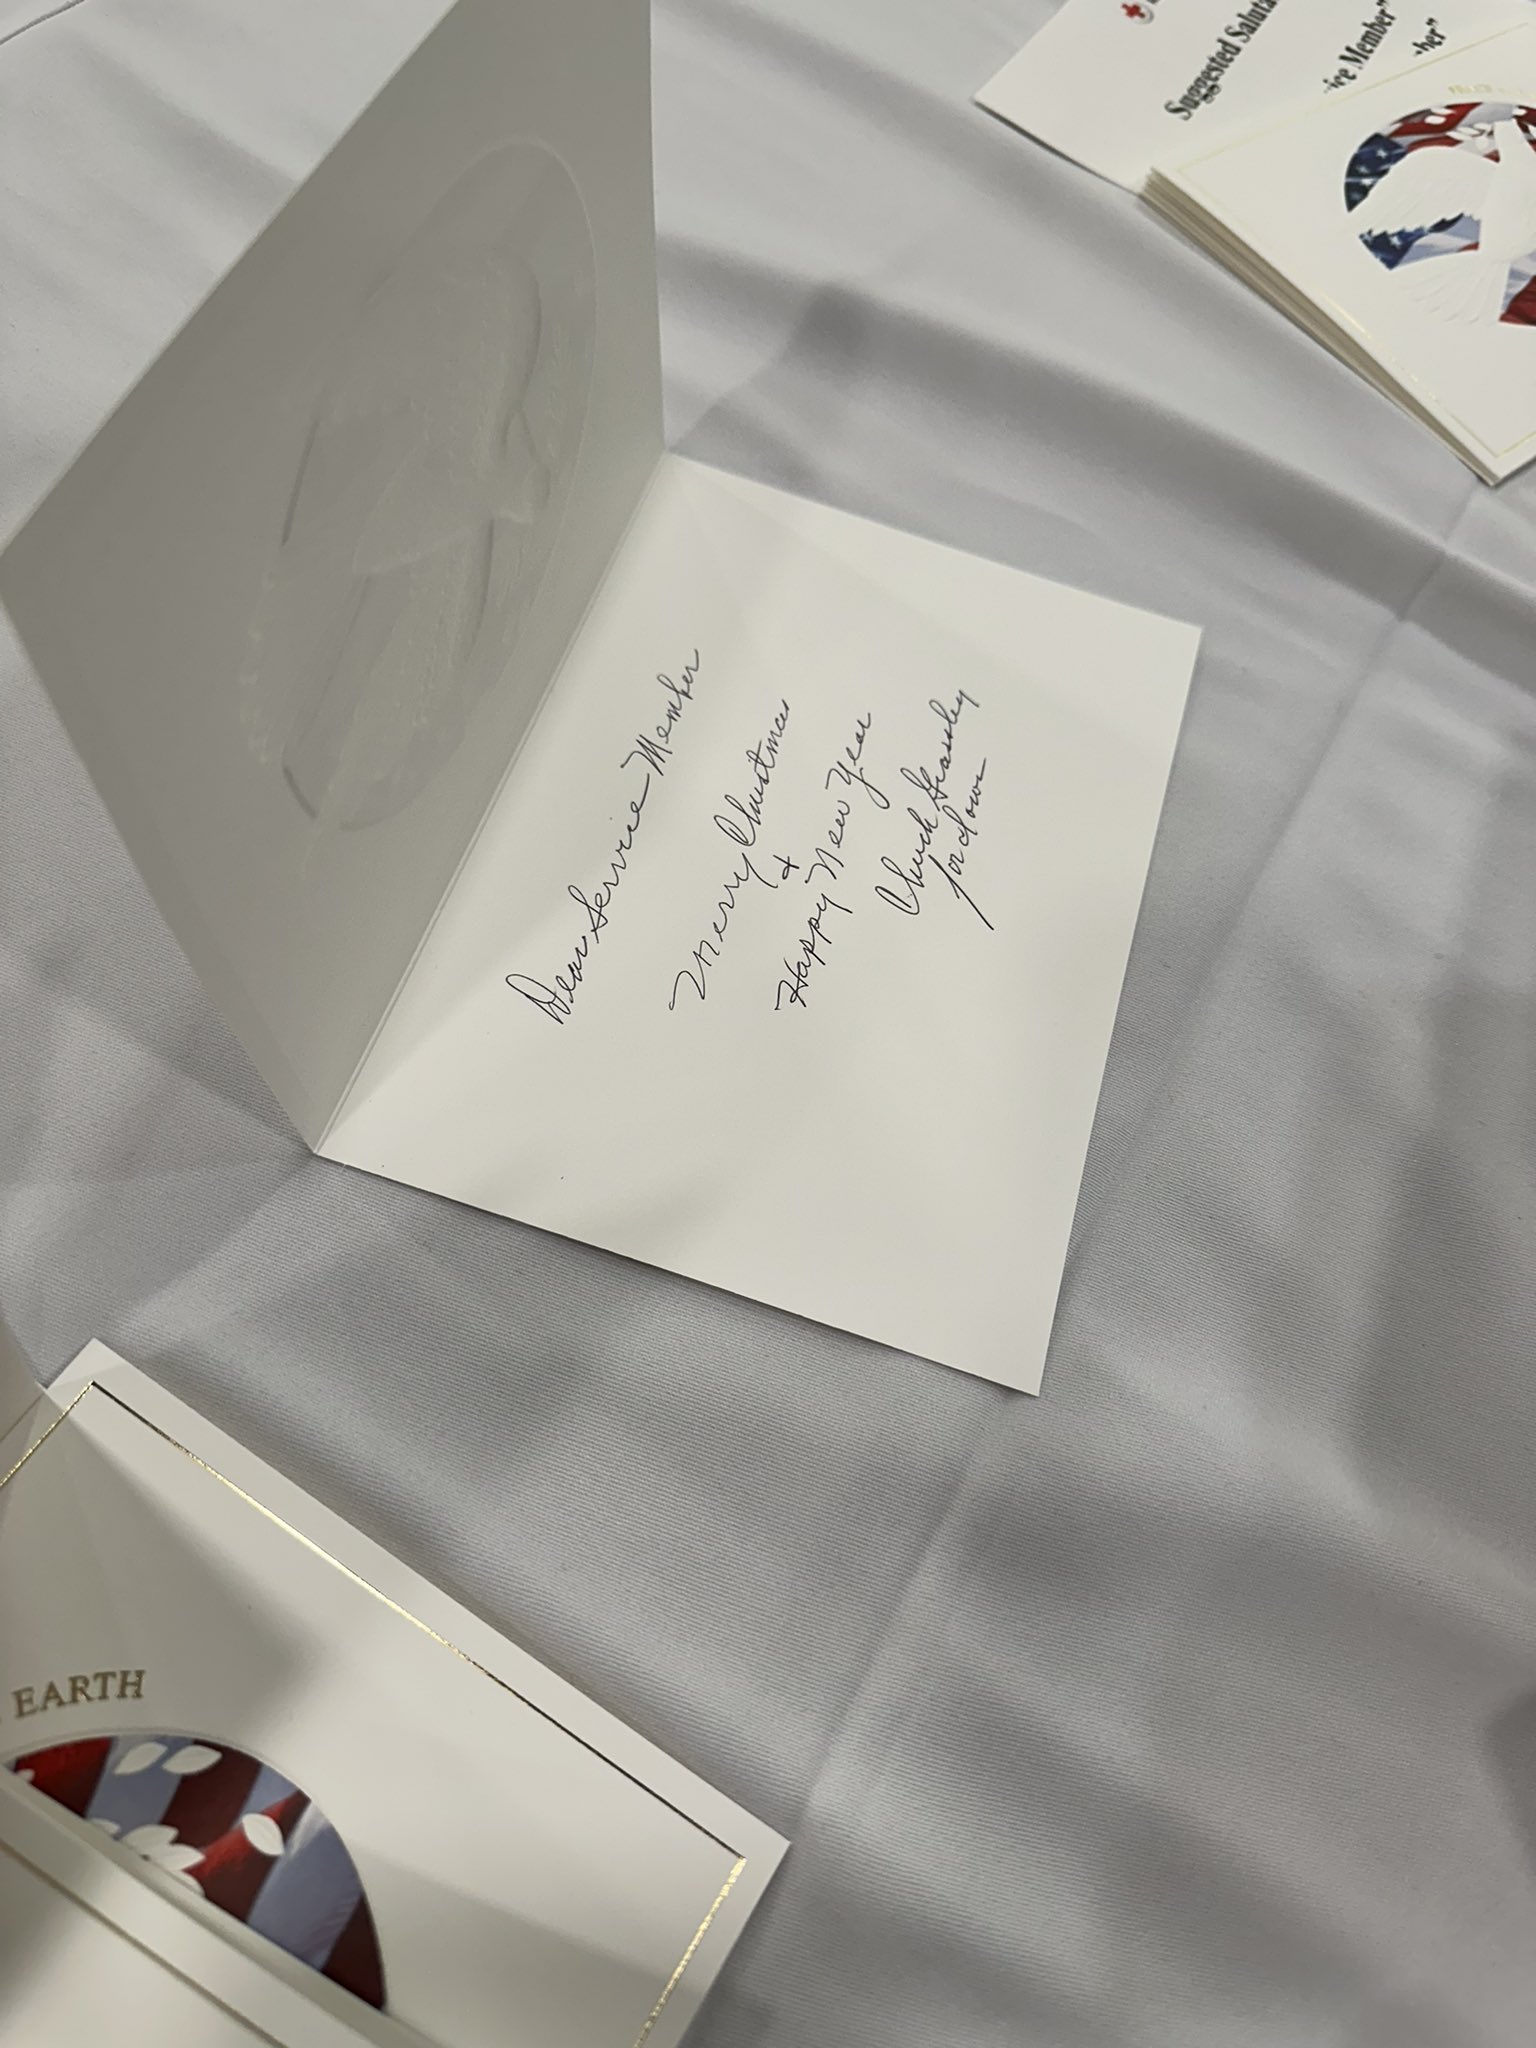 Suggested Saluta
ice Member"
ber"
Dear Service Member
Merry Christmas
+
Happy New Year
Chuck Grassley
for Iowa
EARTH